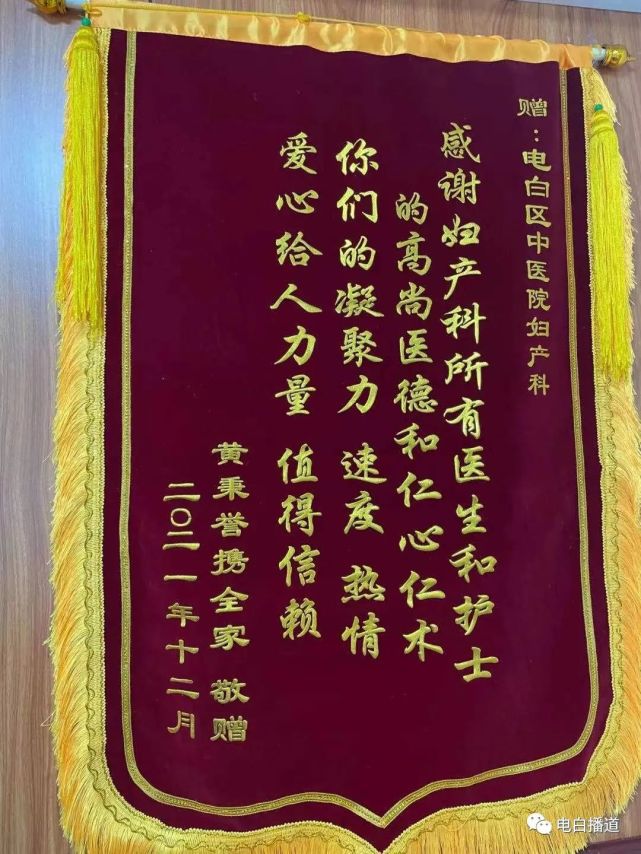 赠：电白区中医院妇产科
感谢妇产科所有医生和护士
的高尚医德和仁心仁术
你们的凝聚力 速度 热情
爱心给人力量 值得信赖
黄秉誉携全家 敬赠
二〇二一年十二月
电白播道